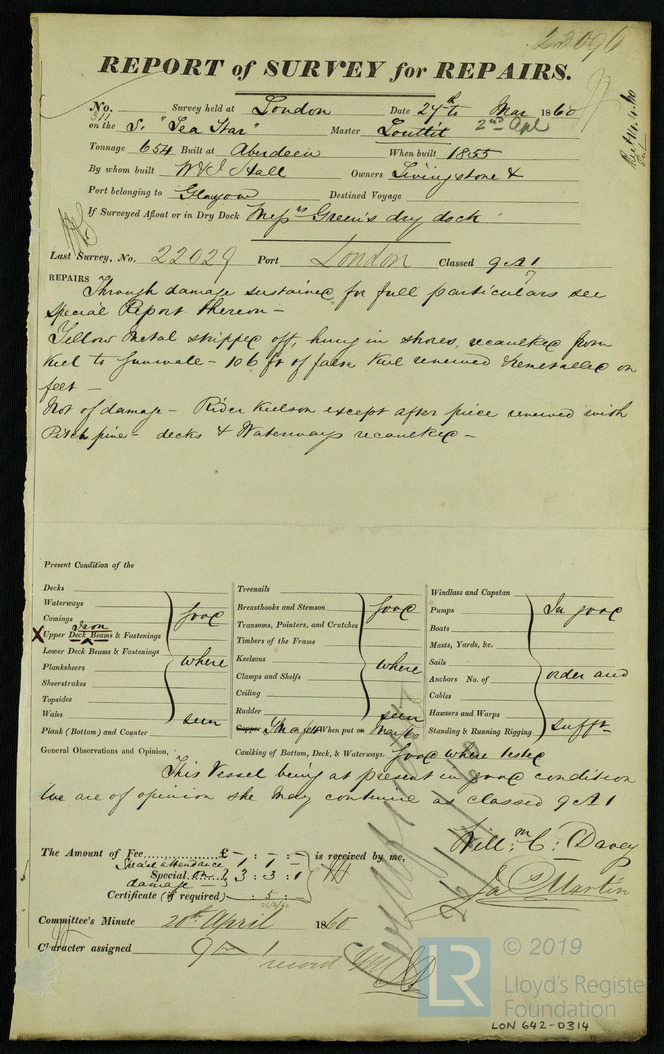 23096
REPORT of SURVEY for REPAIRS.
No. 311 Survey held at London Date 27th to Mar 1860
2nd Apl
on the S. "Sea Star" Master Louttit
Rec 14.4.60
Tonnage 654 Built at Aberdeen When built 1855
By whom built W & J Hall Owners Livingstone &
Port belonging to Glasgow Destined Voyage
If Surveyed Afloat or in Dry Dock Messrs Green's dry dock
Last Survey, No. 22029 Port London Classed 9 A 1
7
REPAIRS Through damage sustained for full particulars see
Special Report thereon –
Yellow Metal stripped off, hung in shores, recaulked from
Keel to Gunwale – 106 ft of false Keel renewed & remetalled on
felt –
Not of damage – Rider Keelson except after piece renewed with
Pitch pine – decks & Waterways recaulked –
Present Condition of the
Decks
Waterways
Comings
Iron
X Upper Deck Beams & Fastenings
Lower Deck Beams & Fastenings
Planksheers
Sheerstrakes
Topsides
Wales
good
where
seen
Plank (Bottom) and Counter
Treenails
Breasthooks and Stemson
Transoms, Pointers, and Crutches
Timbers of the Frame
Keelsons
Clamps and Shelfs
Ceiling
Rudder
good
where
seen
Copper Y M on felt When put on Mar 60
Windlass and Capstan
Pumps
Boats
Masts, Yards, &c.
Sails
Anchors No. of
Cables
Hawsers and Warps
Standing & Running Rigging
In good
order and
sufft
General Observations and Opinion, Caulking of Bottom, Deck, & Waterways. Good where tested
This Vessel being at present in good condition
We are of opinion she may continue as classed 9 A 1
Willm C: Davey
Ja Martin
The Amount of Fee £ – : – : – is received by me,
Special attendance 1 1 –
Special on 3 : 3 : 1
damage –
Certificate (if required) – : 5 : –
26/4/60
Committee's Minute 20th April 1860
Character assigned 9 A 1
record
© 2019
LR
Lloyd's Register
Foundation
LON 642-0314